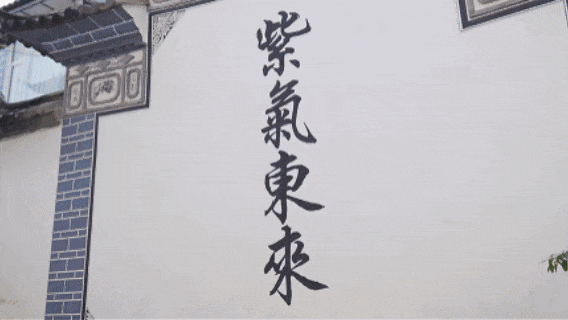 紫氣東來